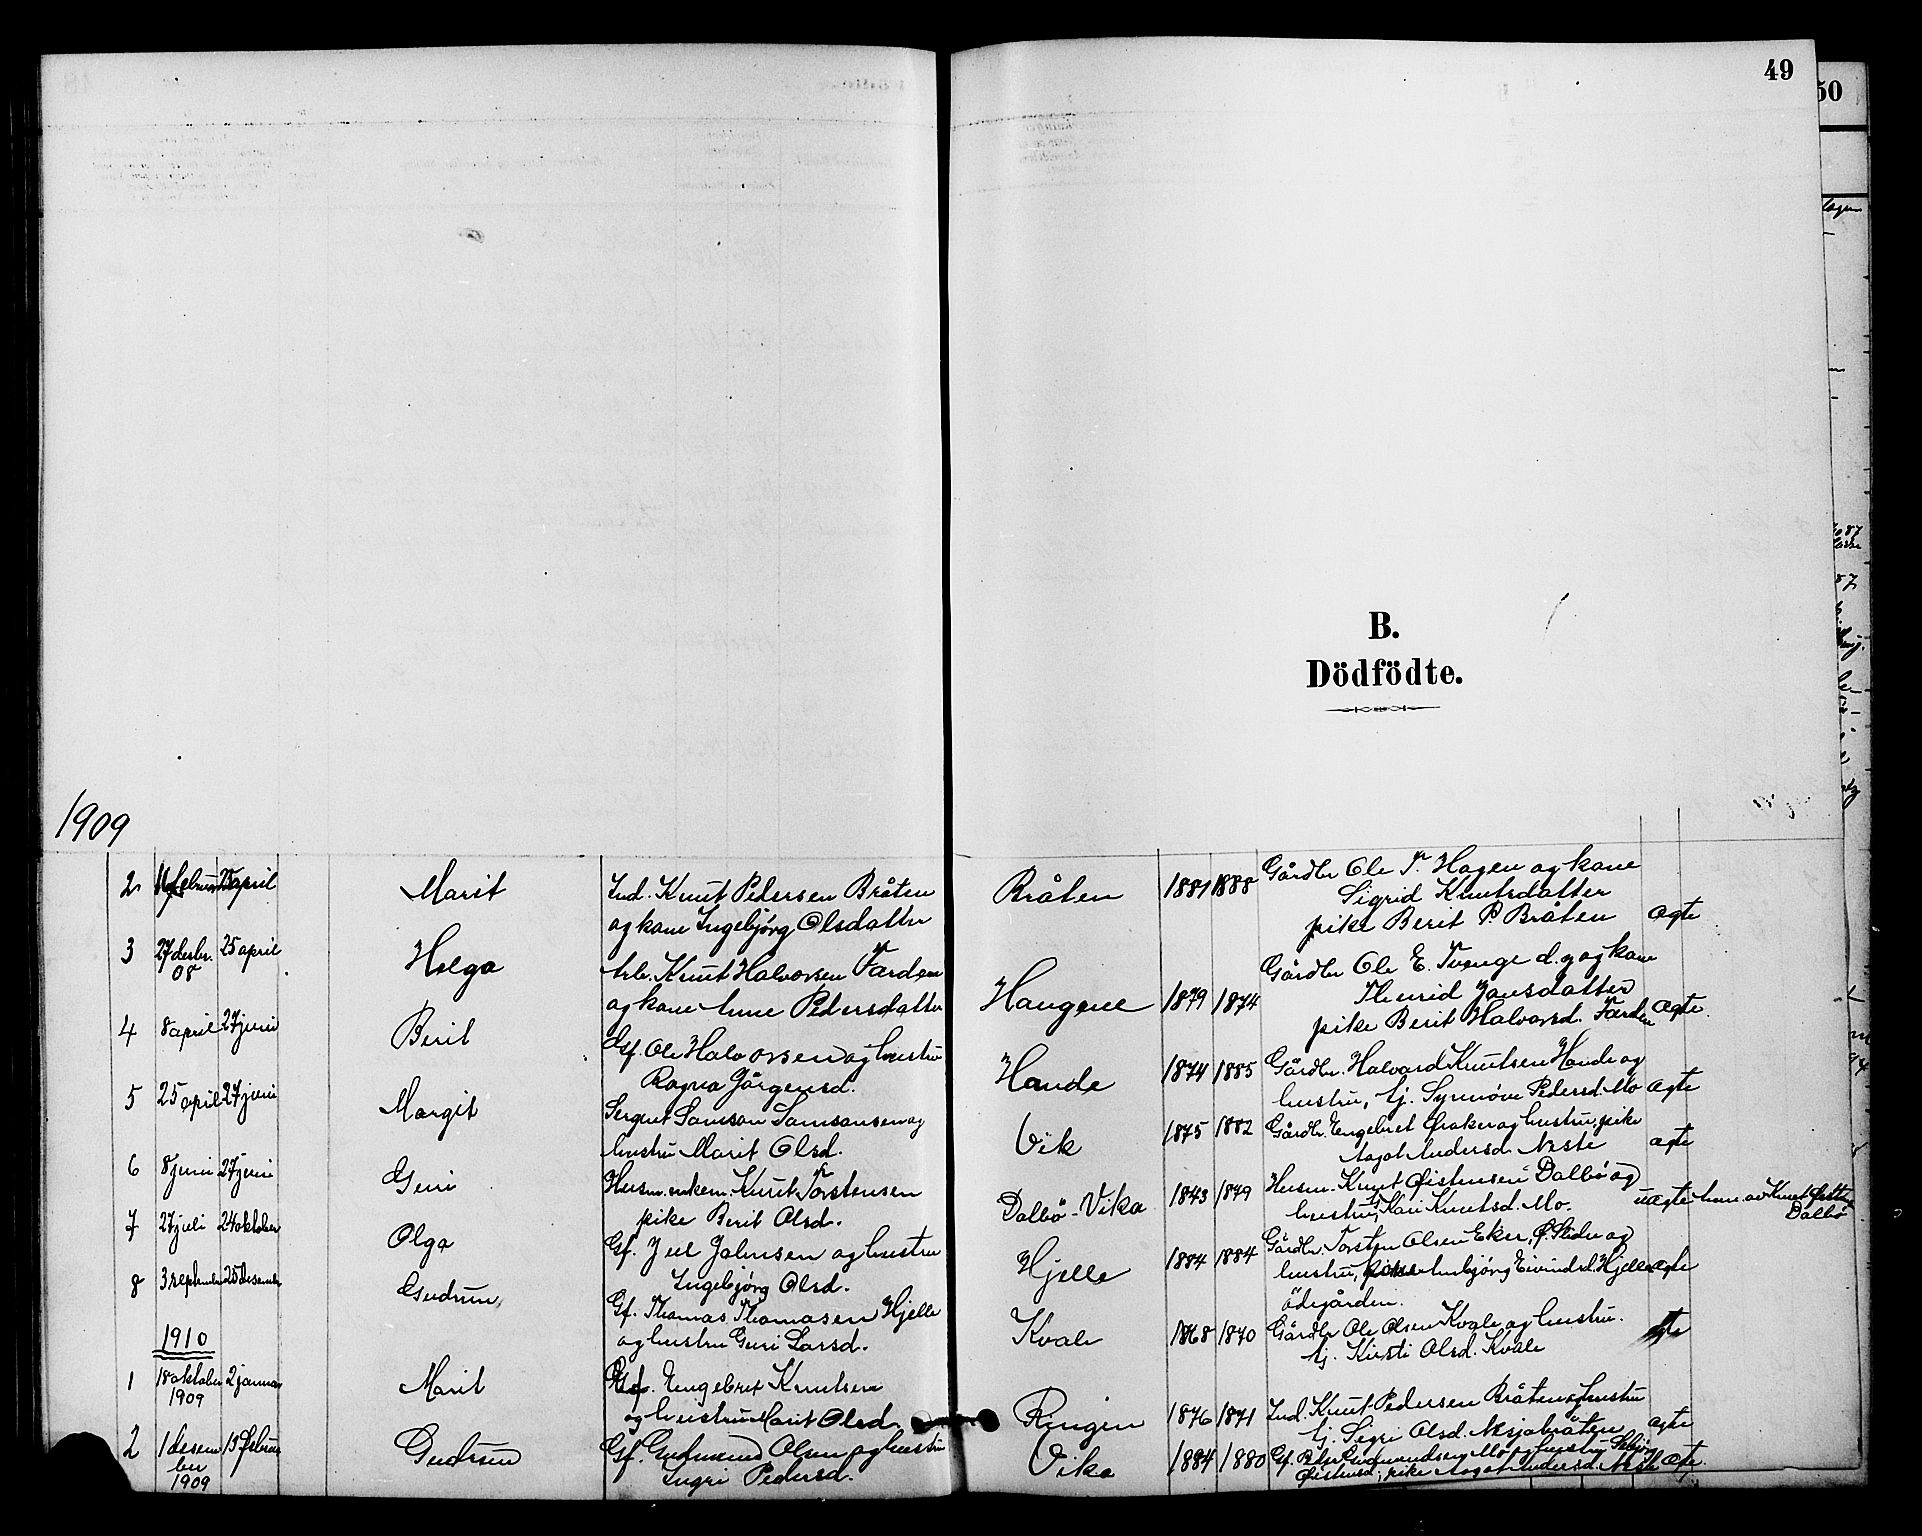 49
50
B.
Dödfödte.
1909
2 11 februar 25 april Marit Ind. Knut Pedersen Bråten Bråten 1881 1888 Gårdbr Ole T. Hagen og kane
og kane Ingebjörg Olsdatter Sigrid Knutsdatter
pike Berit P. Bråten ægte
3 27 desbr. 25 april Helga Arb. Knut Halvorsen Færden Haugene 1879 1874 Gårdbr Ole E. Tvenge d.y og kane
08 og kane Anne Pedersdatter Thurid Jonsdatter
pike Berit Halvorsd. Færden ægte.
4 8 april 27 juni Berit Gsf. Ole Halvorsen og hustru Hande 1874 1885 Gårdbr. Halvard Knutsen Hande og
Ragna Jörgensd. hustru, tj. Synnöve Pedersd. Mo ægte
5 25 april 27 juni Margit Sergent Samson Samsonsen og Vik 1875 1882 Gårdbr. Engebret og hustru, pike
hustru Marit Olsd. Aagot Andersd. Neste ægte
6 8 juni 27 juni Guri Husm. enkem. Knut Torstensen Dalbö-Vika 1843 1879 Husm. Knut Östensen Dalbö og
pike Berit Olsd. hustru, Kari Knutsd. Mo. uægte av Knut Dalbö
7 27 juli 24 oktober Olga Gf. Juul Johnsen og hustru Hjelle 1884 1884 Gårdbr. Torsten Olsen Eker, Ø. Slidre og
Ingebjörg Olsd. hustru, Anbjörg Eivindsd. Hjelle ægte
ödegården.
8 3 september 25 desember Gudrun Gf. Thomas Thomasen Hjelle Kvale 1868 1870 Gårdbr Ole Olsen Kvale og hustru.
og hustru Guri Larsd. tj. Kirsti Olsd. Kvale ægte
1910
1 18 oktober 2 januar Marit Gf. Engebret Knutsen Ringen 1876 1871 Ind. Knut Pedersen Bråten og hustru
1909 og hustru Marit Olsd. tj. Sigri Olsd. Nesjabråten ægte
2 1 desem 13 februar Gudrun Gf. Gudmund Olsen og hustru Vika 1884 1880 Gf. Peder Gudmundsen Mo og hustru
ber Ingri Pedersd. Östensd; pike Aagot Andersd. Neste ægte
1909